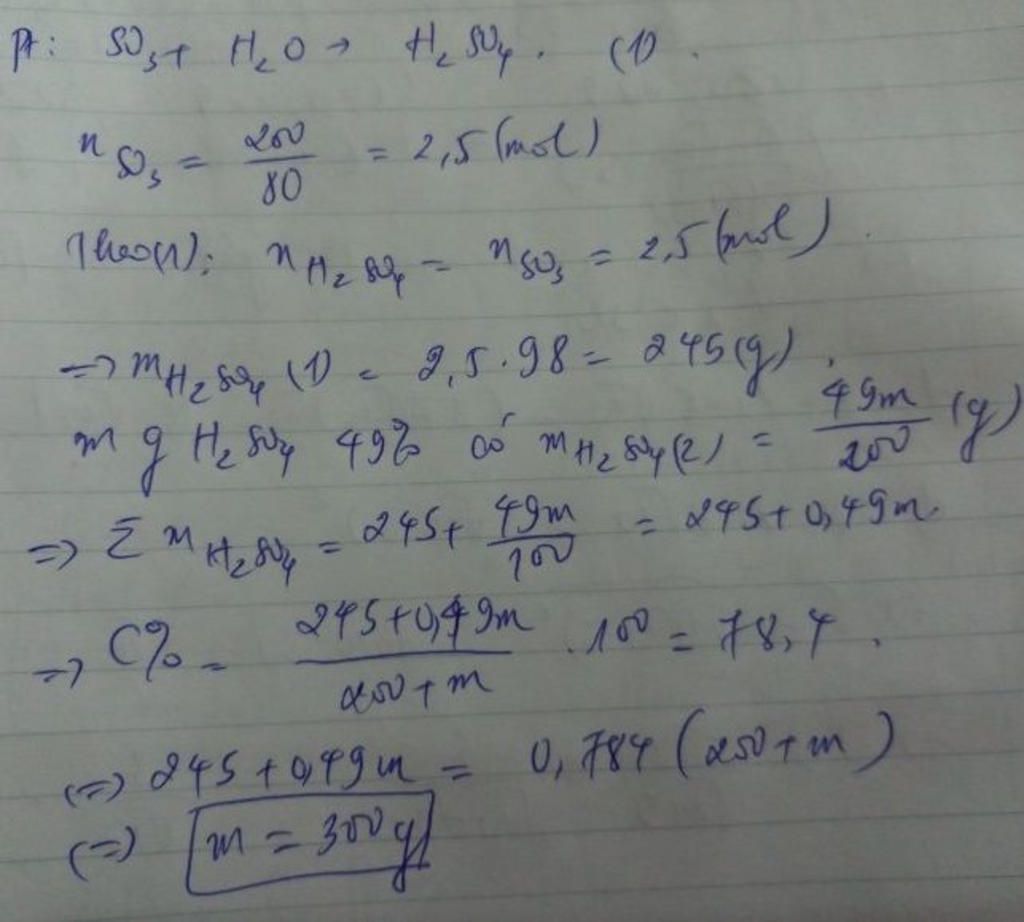 Pt: SO₃ + H₂O → H₂SO₄. (1).
n SO₃ = 200/80 = 2,5 (mol)
Theo (1): n H₂SO₄ = n SO₃ = 2,5 (mol).
=> m H₂SO₄ (1) = 2,5 . 98 = 245 (g).
m g H₂SO₄ 49% có m H₂SO₄ (2) = 49m/200 (g)
=> Σ m H₂SO₄ = 245 + 49m/100 = 245 + 0,49m.
=> C% = (245 + 0,49m)/(200 + m) . 100 = 78,4.
(=) 245 + 0,49m = 0,784 (200 + m)
(=) m = 300g